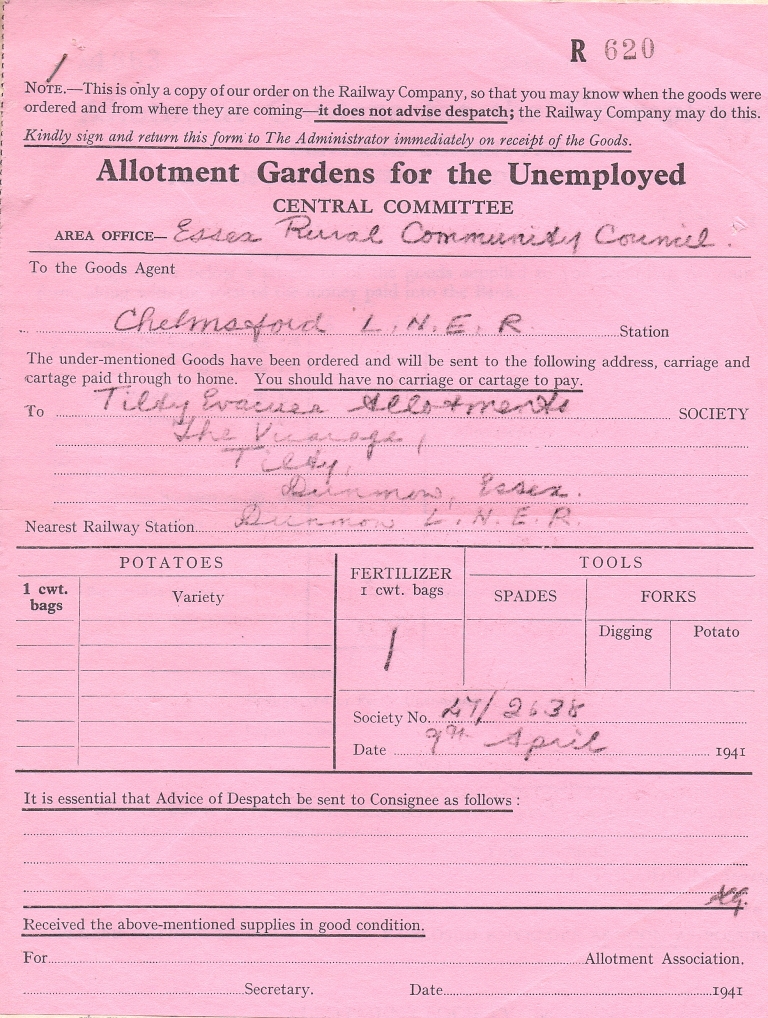 R 620
1
NOTE.—This is only a copy of our order on the Railway Company, so that you may know when the goods were
ordered and from where they are coming—it does not advise despatch; the Railway Company may do this.
Kindly sign and return this form to The Administrator immediately on receipt of the Goods.
Allotment Gardens for the Unemployed
CENTRAL COMMITTEE
AREA OFFICE— Essex Rural Community Council.
To the Goods Agent
Chelmsford L.N.E.R. Station
The under-mentioned Goods have been ordered and will be sent to the following address, carriage and
cartage paid through to home. You should have no carriage or cartage to pay.
To Tilty Evacuee Allotments SOCIETY
The Vicarage,
Tilty,
Dunmow, Essex.
Nearest Railway Station Dunmow L.N.E.R.
POTATOES
1 cwt. bags
Variety
FERTILIZER
1 cwt. bags
1
TOOLS
SPADES
FORKS
Digging
Potato
Society No. 27/2638
Date 9th April 1941
It is essential that Advice of Despatch be sent to Consignee as follows:
Received the above-mentioned supplies in good condition.
For Allotment Association.
Secretary. Date 1941